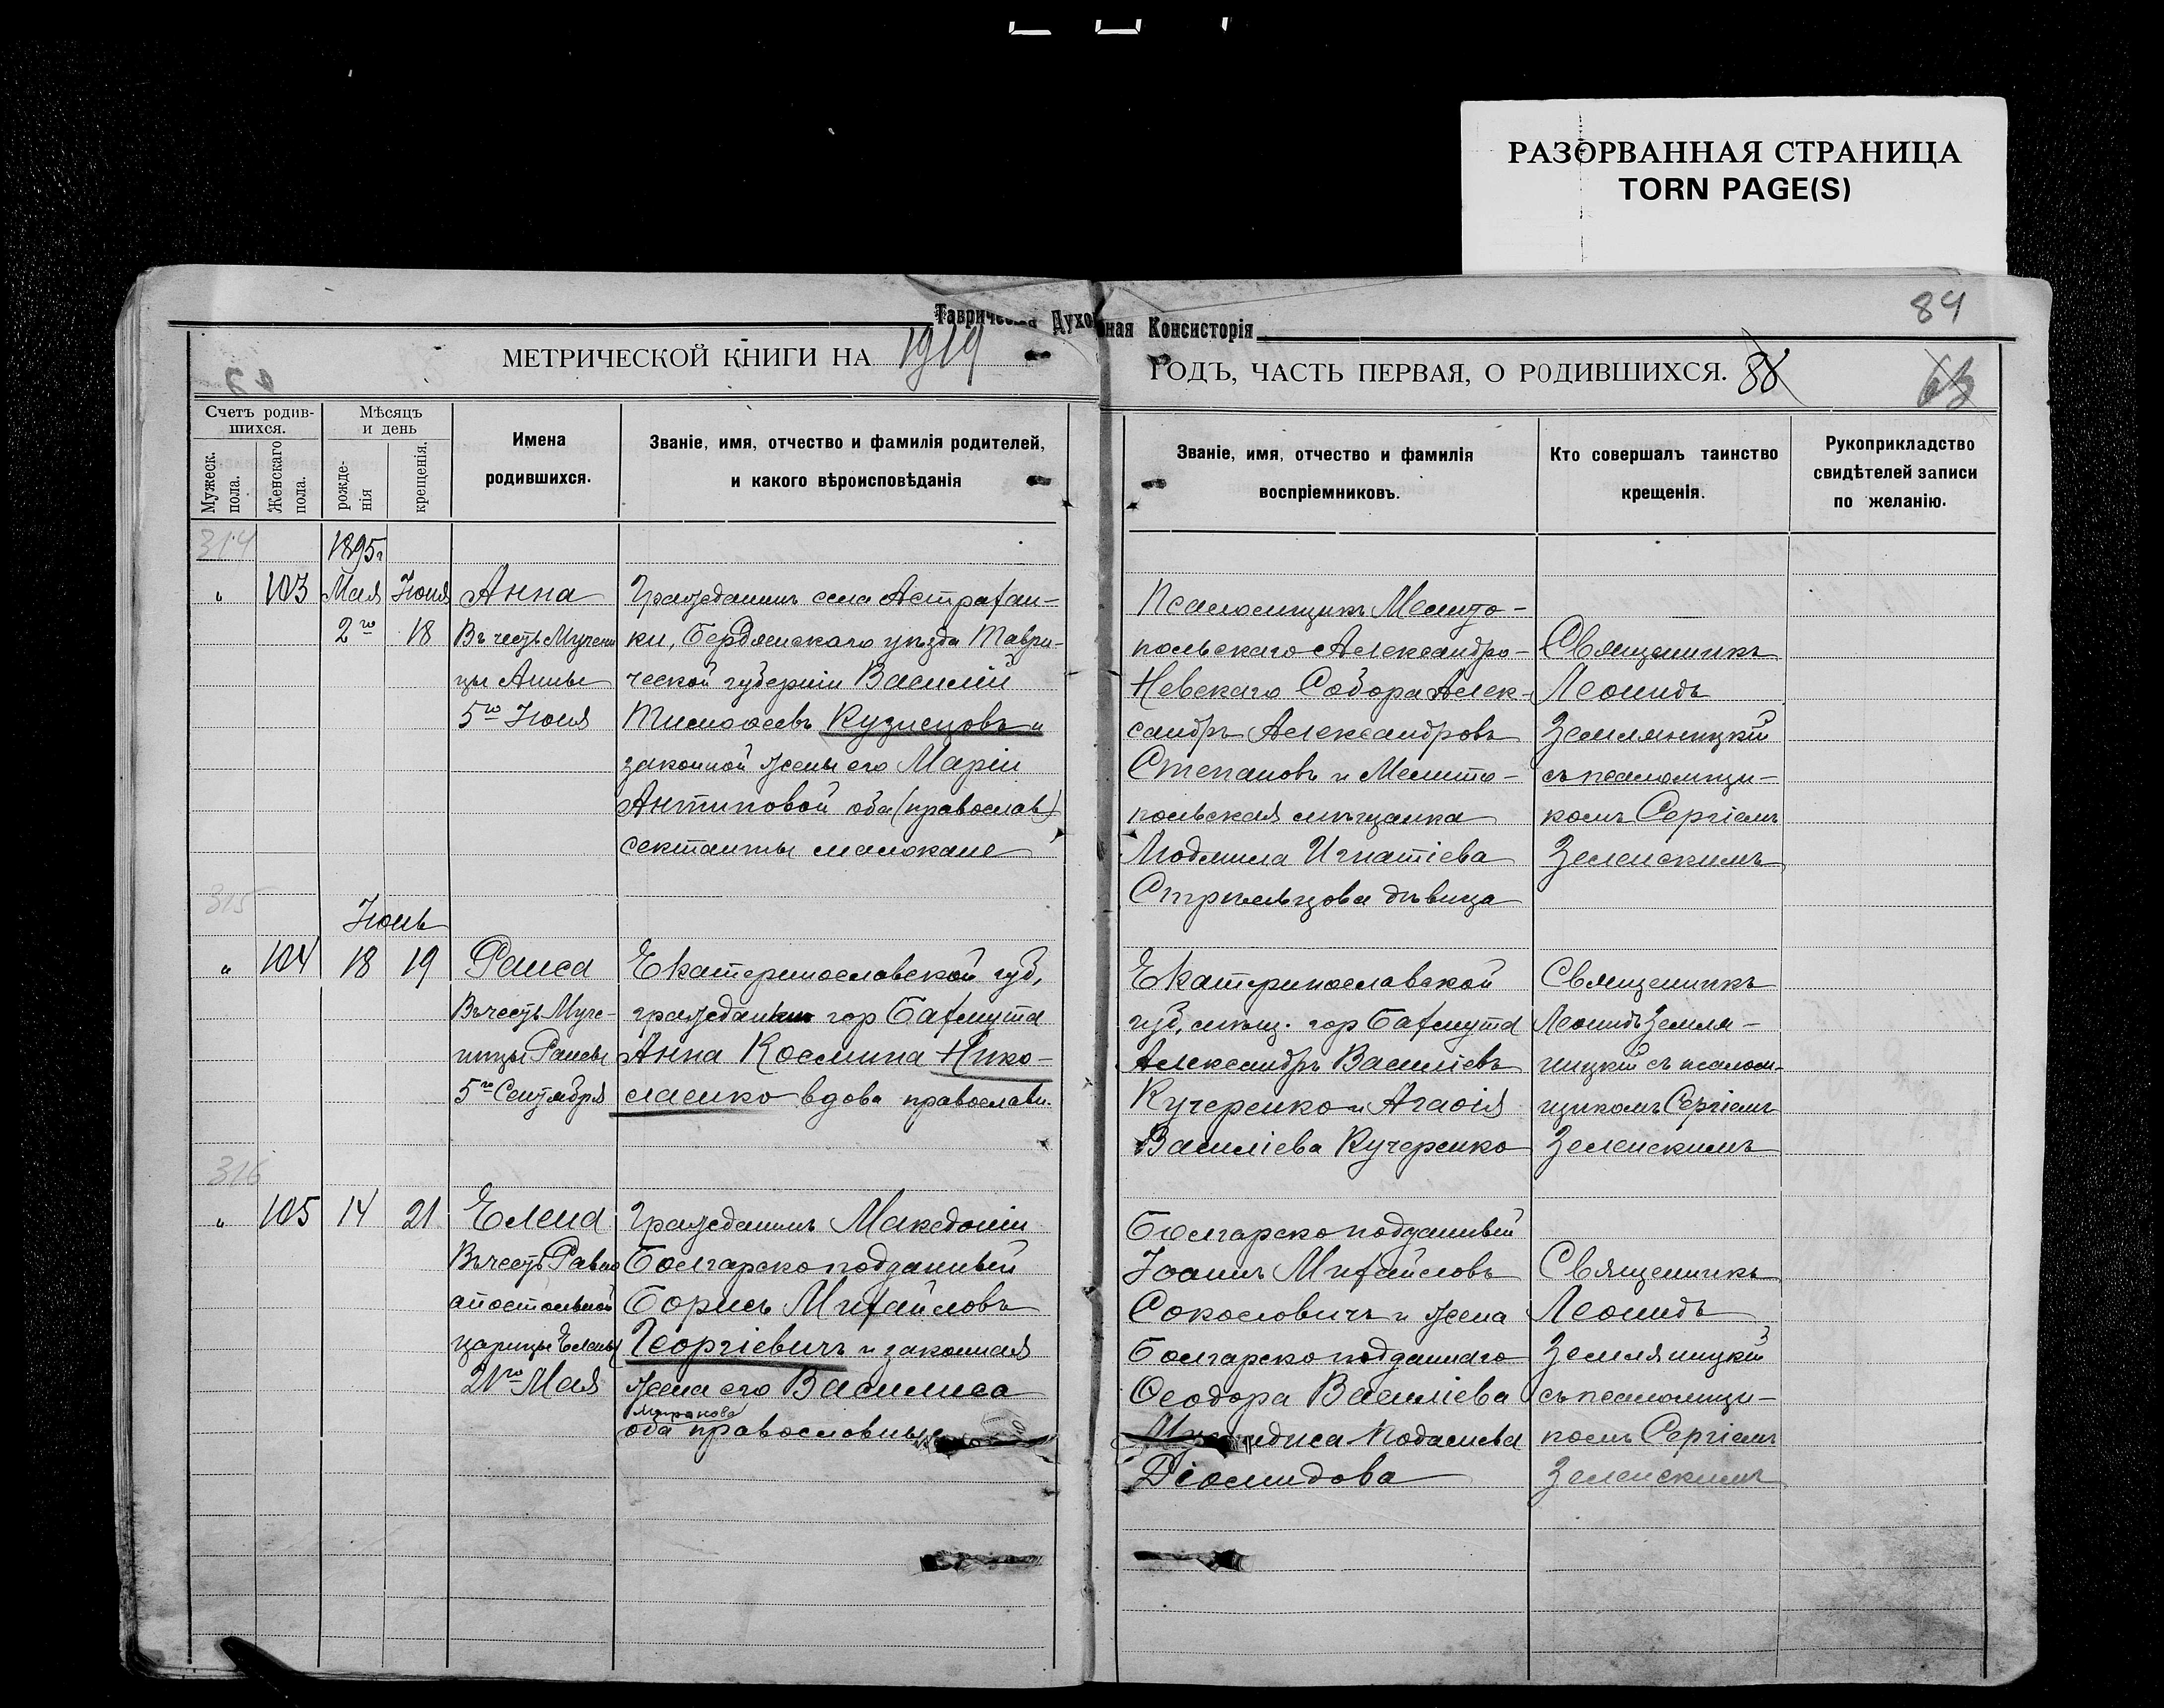 РАЗОРВАННАЯ СТРАНИЦА
TORN PAGE(S)
84
Таврическая Духовная Консисторія
МЕТРИЧЕСКОЙ КНИГИ НА 1919
ГОДЪ, ЧАСТЬ ПЕРВАЯ, О РОДИВШИХСЯ. 88
63
Счетъ родив-
шихся.
Мужеск.
пола.
Женскаго
пола.
Мѣсяцъ
и день
рожде-
нія
крещенія.
Имена
родившихся.
Званіе, имя, отчество и фамилія родителей,
и какого вѣроисповѣданія
Званіе, имя, отчество и фамилія
воспріемниковъ.
Кто совершалъ таинство
крещенія.
Рукоприкладство
свидѣтелей записи
по желанію.
314
1895г
" 103 Мая Іюня
2го 18
Анна
Въ честь Мучени
цы Анны
5го Іюня
Гражданинъ села Астрахан-
ки, Бердянскаго уѣзда Таври-
ческой губерніи Василій
Тимофеевъ Кузнецовъ и
законной жены его Маріи
Антиповой оба (православ)
сектанты молокане
Псаломщикъ Мелито-
польскаго Александро-
Невскаго Собора Алек-
сандръ Александровъ
Степановъ и Мелито-
польская мѣщанка
Людмила Игнатіева
Стрѣльцова дѣвица
Священникъ
Леонидъ
Земляницкій
съ псаломщи-
комъ Сергіемъ
Зеленскимъ
315
Іюнь
" 104 18 19
Раиса
Въ честь Муче-
ницы Раисы
5го Сентября
Екатеринославской губ.
гражданка гор Бахмута
Анна Космина Нико-
лаенко вдова православн.
Екатеринославской
губ. мѣщ. гор Бахмута
Александръ Василіевъ
Кучеренко и Агафія
Василіева Кучеренко
Священникъ
Леонидъ Земля-
ницкій съ псалом-
щикомъ Сергіемъ
Зеленскимъ
316
" 105 14 21
Елена
Въ честь Равно
апостольной
царицы Елены
21го Мая
Гражданинъ Македоніи
Болгарскоподданный
Борисъ Михайловъ
Георгіевичъ и законная
жена его Василиса
оба православные
Болгарскоподданный
Іоаннъ Михайловъ
Соколовичъ и жена
Болгарскоподданнаго
Ѳеодора Василіева
Діомидова
Священникъ
Леонидъ
Земляницкій
съ псаломщи-
комъ Сергіемъ
Зеленскимъ